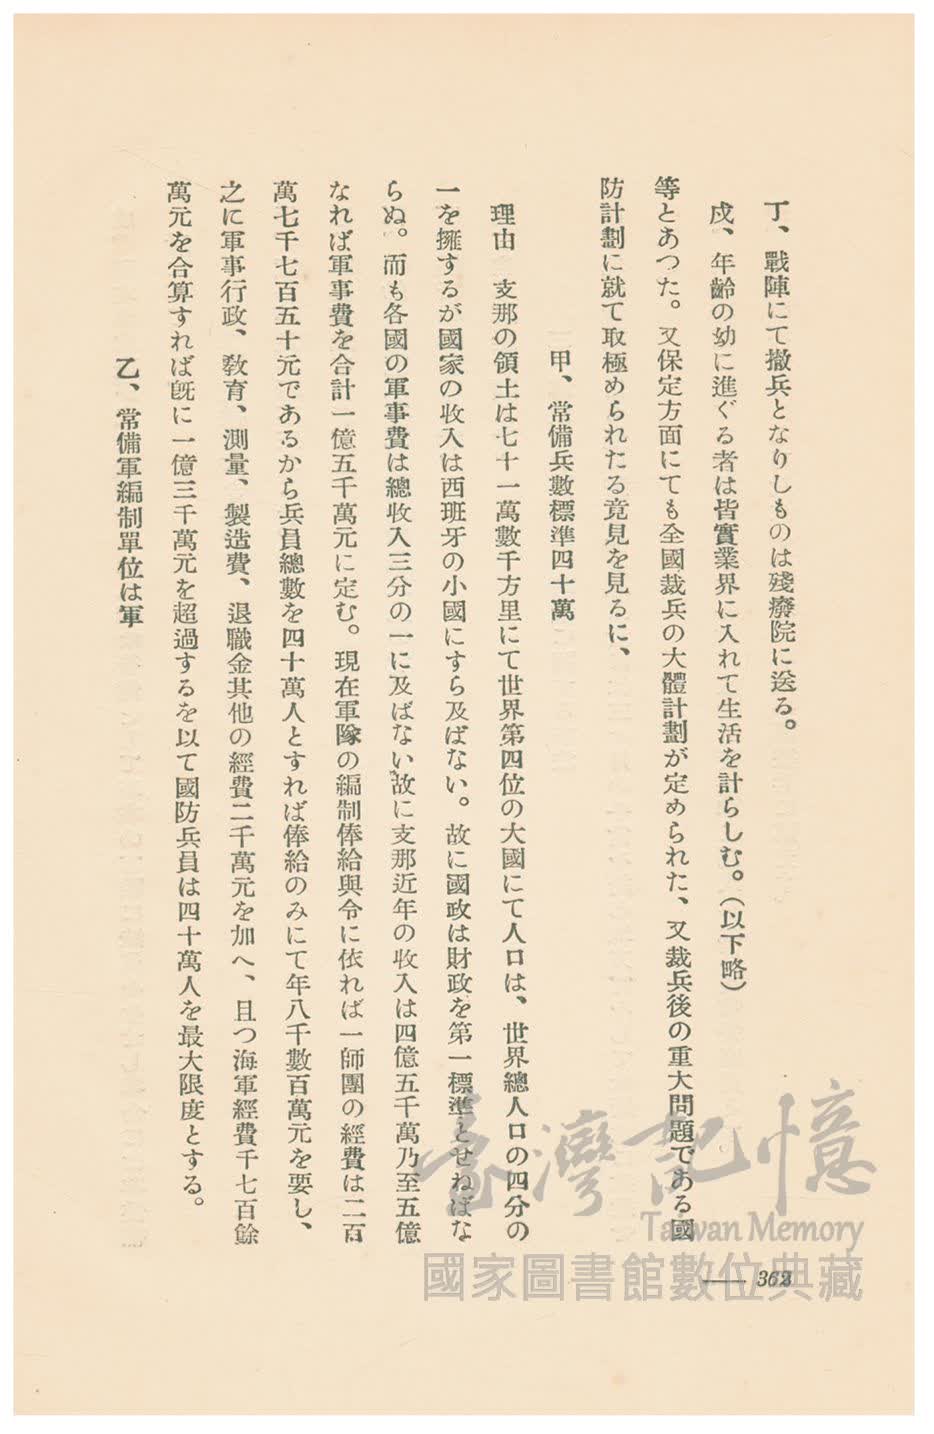 丁、戰陣にて撤兵となりしものは殘癈院に送る。
戍、年齡の幼に進ぐる者は皆實業界に入れて生活を計らしむ。（以下略）
等とあつた。又保定方面にても全國裁兵の大體計劃が定められた、又裁兵後の重大問題である國
防計劃に就て取極められたる竟見を見るに、
甲、常備兵數標準四十萬
理由　支那の領土は七十一萬數千方里にて世界第四位の大國にて人口は、世界總人口の四分の
一を擁するが國家の收入は西班牙の小國にすら及ばない。故に國政は財政を第一標準とせねばな
らぬ。而も各國の軍事費は總收入三分の一に及ばない故に支那近年の收入は四億五千萬乃至五億
なれば軍事費を合計一億五千萬元に定む。現在軍隊の編制俸給與令に依れば一師團の經費は二百
萬七千七百五十元であるから兵員總數を四十萬人とすれば俸給のみにて年八千數百萬元を要し、
之に軍事行政、敎育、測量、製造費、退職金其他の經費二千萬元を加へ、且つ海軍經費千七百餘
萬元を合算すれば既に一億三千萬元を超過するを以て國防兵員は四十萬人を最大限度とする。
乙、常備軍編制單位は軍
362
臺灣記憶
Taiwan Memory
國家圖書館數位典藏